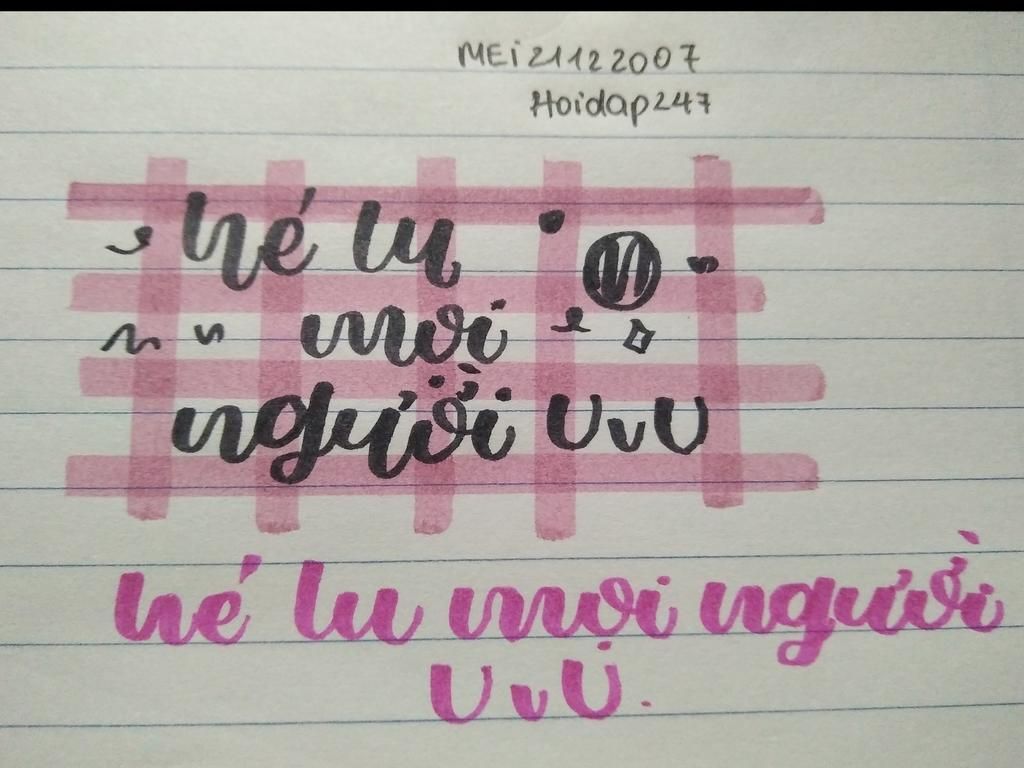 MEi21122007
Hoidap247
hé lu
mọi
người UvU
hé lu mọi người
UvU.